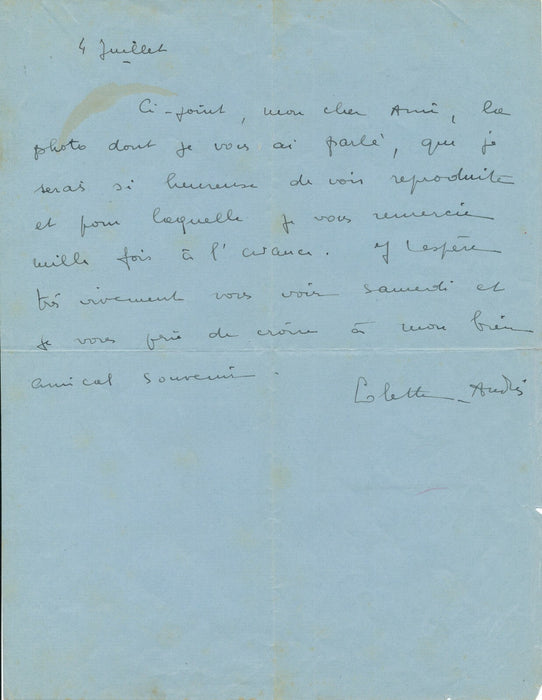 4 Juillet
Ci-joint, mon cher Ami, la
photo dont je vous ai parlé, que je
serais si heureuse de voir reproduite
et pour laquelle je vous remercie
mille fois à l'avance. J'espère
très vivement vous voir samedi et
je vous prie de croire à mon bien
amical souvenir.
Colette-Andris